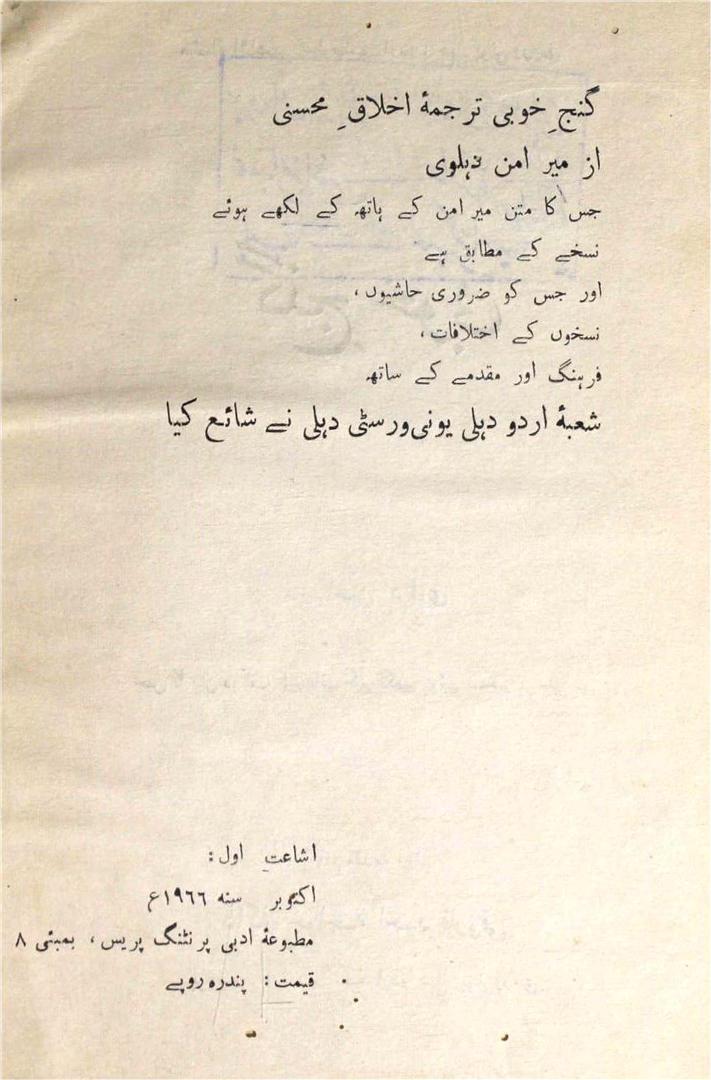 گنجِ خوبی ترجمۂ اخلاقِ محسنی
از میر امن دہلوی
جس کا متن میر امن کے ہاتھ کے لکھے ہوئے
نسخے کے مطابق ہے
اور جس کو ضروری حاشیوں،
نسخوں کے اختلافات،
فرہنگ اور مقدمے کے ساتھ
شعبۂ اردو دہلی یونی ورسٹی دہلی نے شائع کیا
اشاعتِ اول:
اکتوبر سنہ ۱۹۶۶ع
مطبوعۂ ادبی پرنٹنگ پریس، بمبئی ۸
قیمت: پندرہ روپے